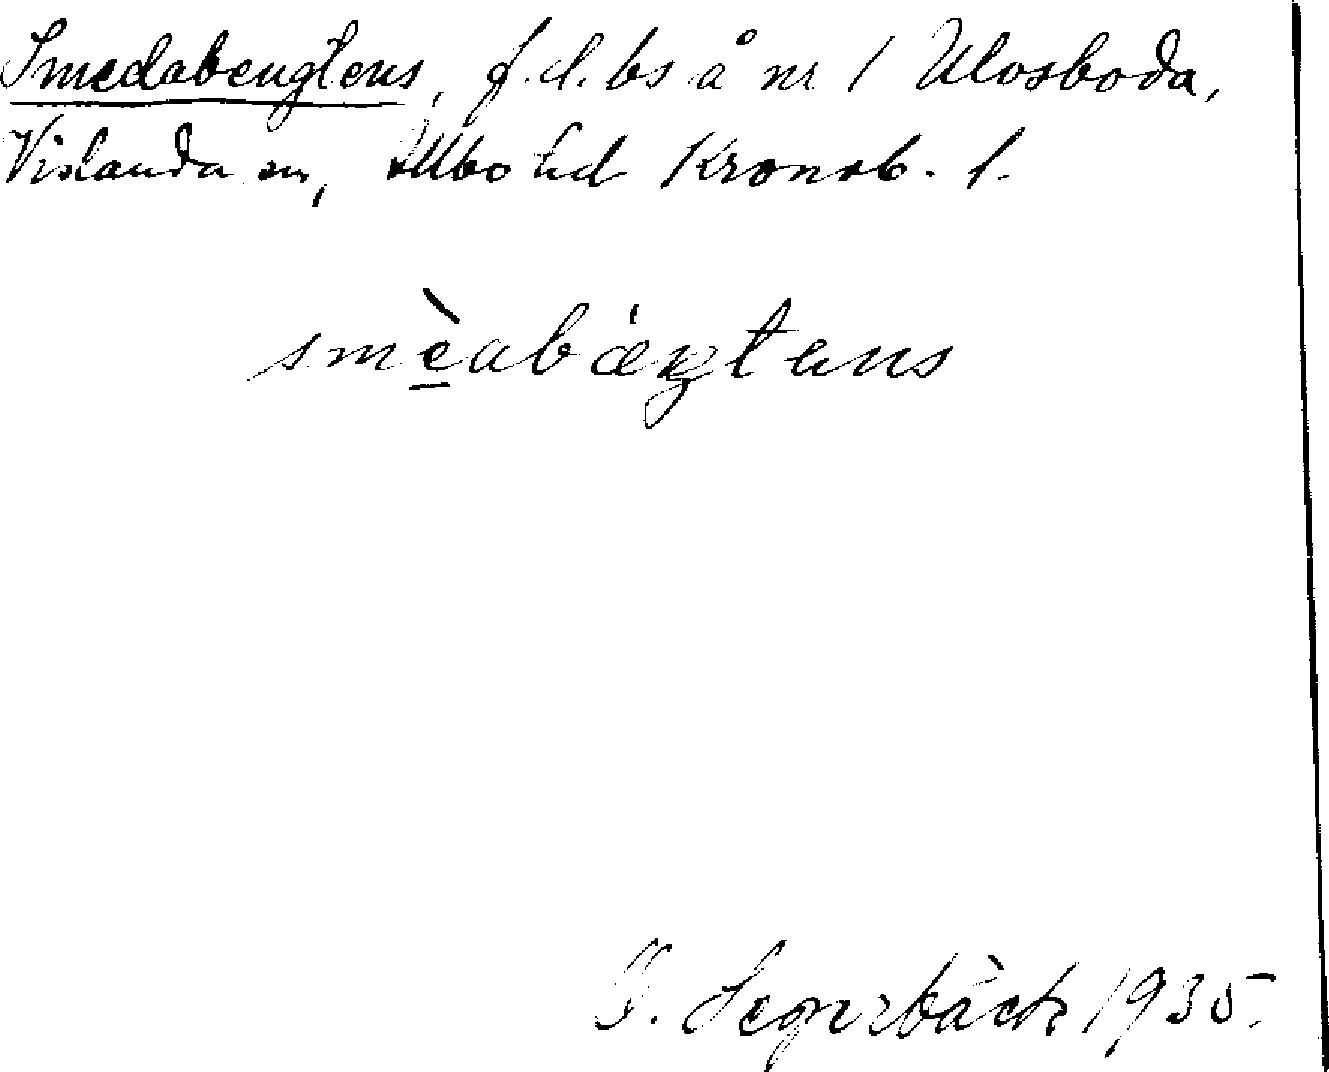 Smedabengtens, f.d. bs å nr 1 Ulvsboda,
Vislanda sn, Allbo hd Kronob. l.
smèabǽŋtens
G. Segerbäck 1935.